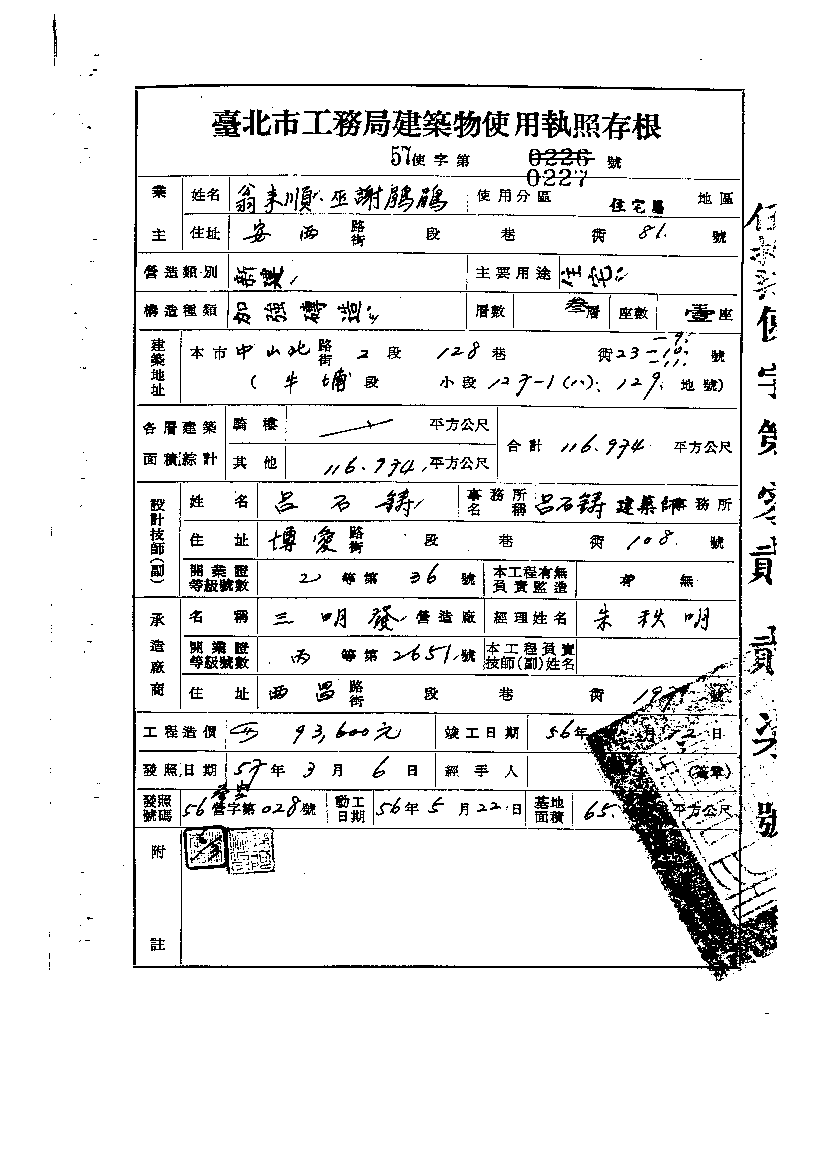 臺北市工務局建築物使用執照存根
57使字第 0226 號
0227
業主 姓名 翁來順 巫謝鵑鵑 使用分區 住宅區 地區
住址 安西 路街 段 巷 街 81 號
營造類別 新建 主要用途 住宅
構造種類 加強磚造 層數 叁層 座數 壹座
建築地址 本市中山北 路街 2 段 128 巷 街 23 -9. -10. -11. 號
( 牛埔 段 小段 129-1(八)、129 地號)
各層建築面積綜計 騎樓 平方公尺 合計 116.934 平方公尺
其他 116.934 平方公尺
設計技師(副) 姓名 呂石鑄 事務所名稱 呂石鑄建築師事務所
住址 博愛 路街 段 巷 街 108 號
開業證等級號數 2 等第 36 號 本工程有無負責監造 有 無
承造廠商 名稱 三明發 營造廠 經理姓名 朱秋明
開業證等級號數 丙 等第 2651 號 本工程負責技師(副)姓名
住址 西昌 路街 段 巷 街 號
工程造價 93,600元 竣工日期 56年 月12日
發照日期 57年3月6日 經手人 (簽章)
發照號碼 56營字第028號 動工日期 56年5月22日 基地面積 65. 平方公尺
附註
使字第零貳貳柒號